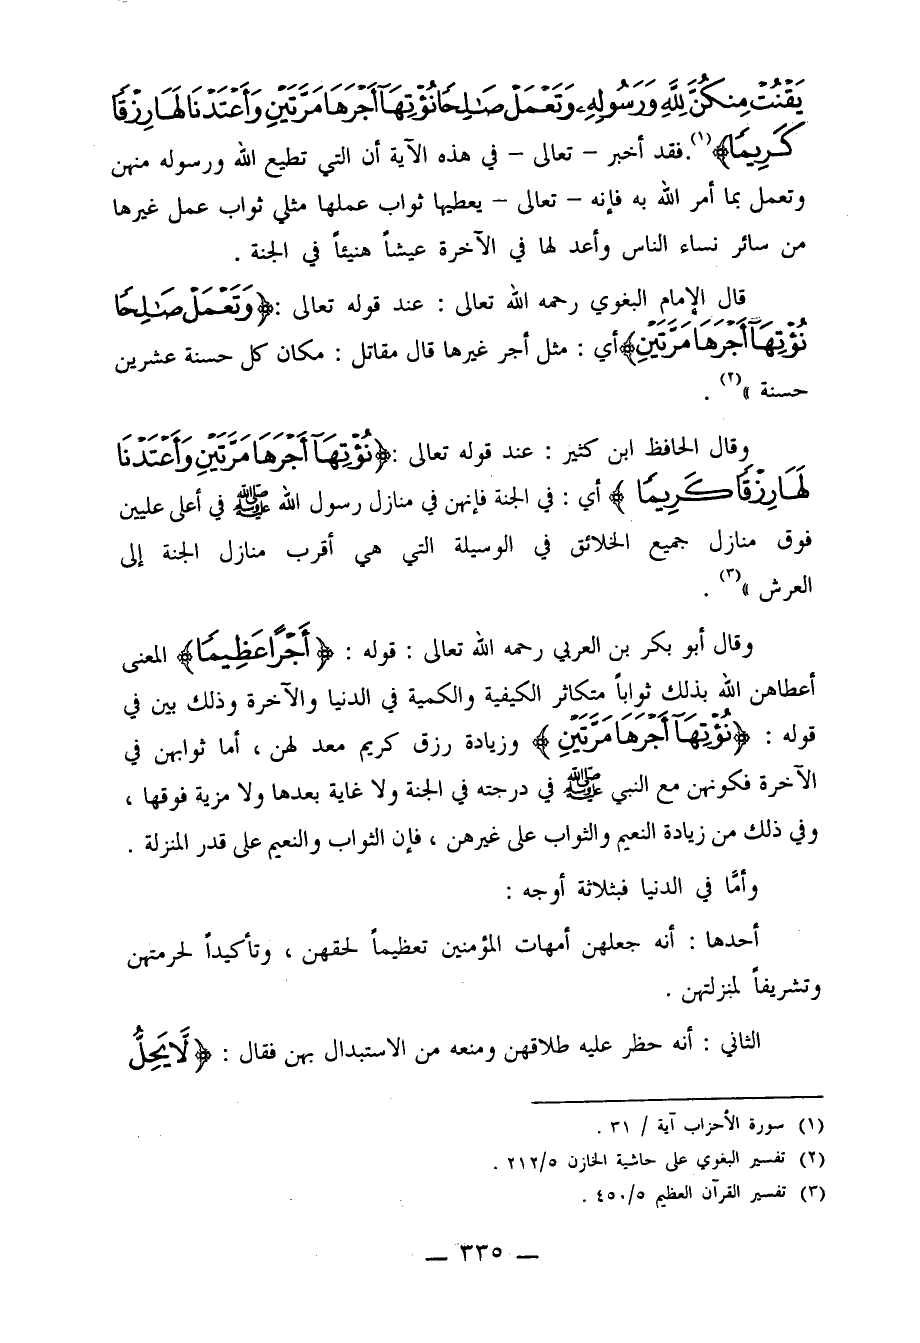 يَقْنُتْ مِنكُنَّ لِلَّهِ وَرَسُولِهِ وَتَعْمَلْ صَٰلِحًا نُّؤْتِهَآ أَجْرَهَا مَرَّتَيْنِ وَأَعْتَدْنَا لَهَا رِزْقًا
كَرِيمًا﴾(١). فقد أخبر – تعالى – في هذه الآية أن التي تطيع الله ورسوله منهن
وتعمل بما أمر الله به فإنه – تعالى – يعطيها ثواب عملها مثلي ثواب عمل غيرها
من سائر نساء الناس وأعد لها في الآخرة عيشاً هنيئاً في الجنة .
قال الإمام البغوي رحمه الله تعالى : عند قوله تعالى :﴿وَتَعْمَلْ صَٰلِحًا
نُّؤْتِهَآ أَجْرَهَا مَرَّتَيْنِ﴾أي : مثل أجر غيرها قال مقاتل : مكان كل حسنة عشرين
حسنة »(٢) .
وقال الحافظ ابن كثير : عند قوله تعالى :﴿نُّؤْتِهَآ أَجْرَهَا مَرَّتَيْنِ وَأَعْتَدْنَا
لَهَا رِزْقًا كَرِيمًا ﴾ أي : في الجنة فإنهن في منازل رسول الله ﷺ في أعلى عليين
فوق منازل جميع الخلائق في الوسيلة التي هي أقرب منازل الجنة إلى
العرش »(٣) .
وقال أبو بكر بن العربي رحمه الله تعالى : قوله : ﴿أَجْرًا عَظِيمًا﴾ المعنى
أعطاهن الله بذلك ثواباً متكاثر الكيفية والكمية في الدنيا والآخرة وذلك بين في
قوله : ﴿نُّؤْتِهَآ أَجْرَهَا مَرَّتَيْنِ ﴾ وزيادة رزق كريم معد لهن ، أما ثوابهن في
الآخرة فكونهن مع النبي ﷺ في درجته في الجنة ولا غاية بعدها ولا مزية فوقها ،
وفي ذلك من زيادة النعيم والثواب على غيرهن ، فإن الثواب والنعيم على قدر المنزلة .
وأمَّا في الدنيا فبثلاثة أوجه :
أحدها : أنه جعلهن أمهات المؤمنين تعظيماً لحقهن ، وتأكيداً لحرمتهن
وتشريفاً لمنزلتهن .
الثاني : أنه حظر عليه طلاقهن ومنعه من الاستبدال بهن فقال : ﴿لَّا يَحِلُّ
(١) سورة الأحزاب آية / ٣١ .
(٢) تفسير البغوي على حاشية الخازن ٢١٢/٥ .
(٣) تفسير القرآن العظيم ٤٥٠/٥ .
— ٣٣٥ —